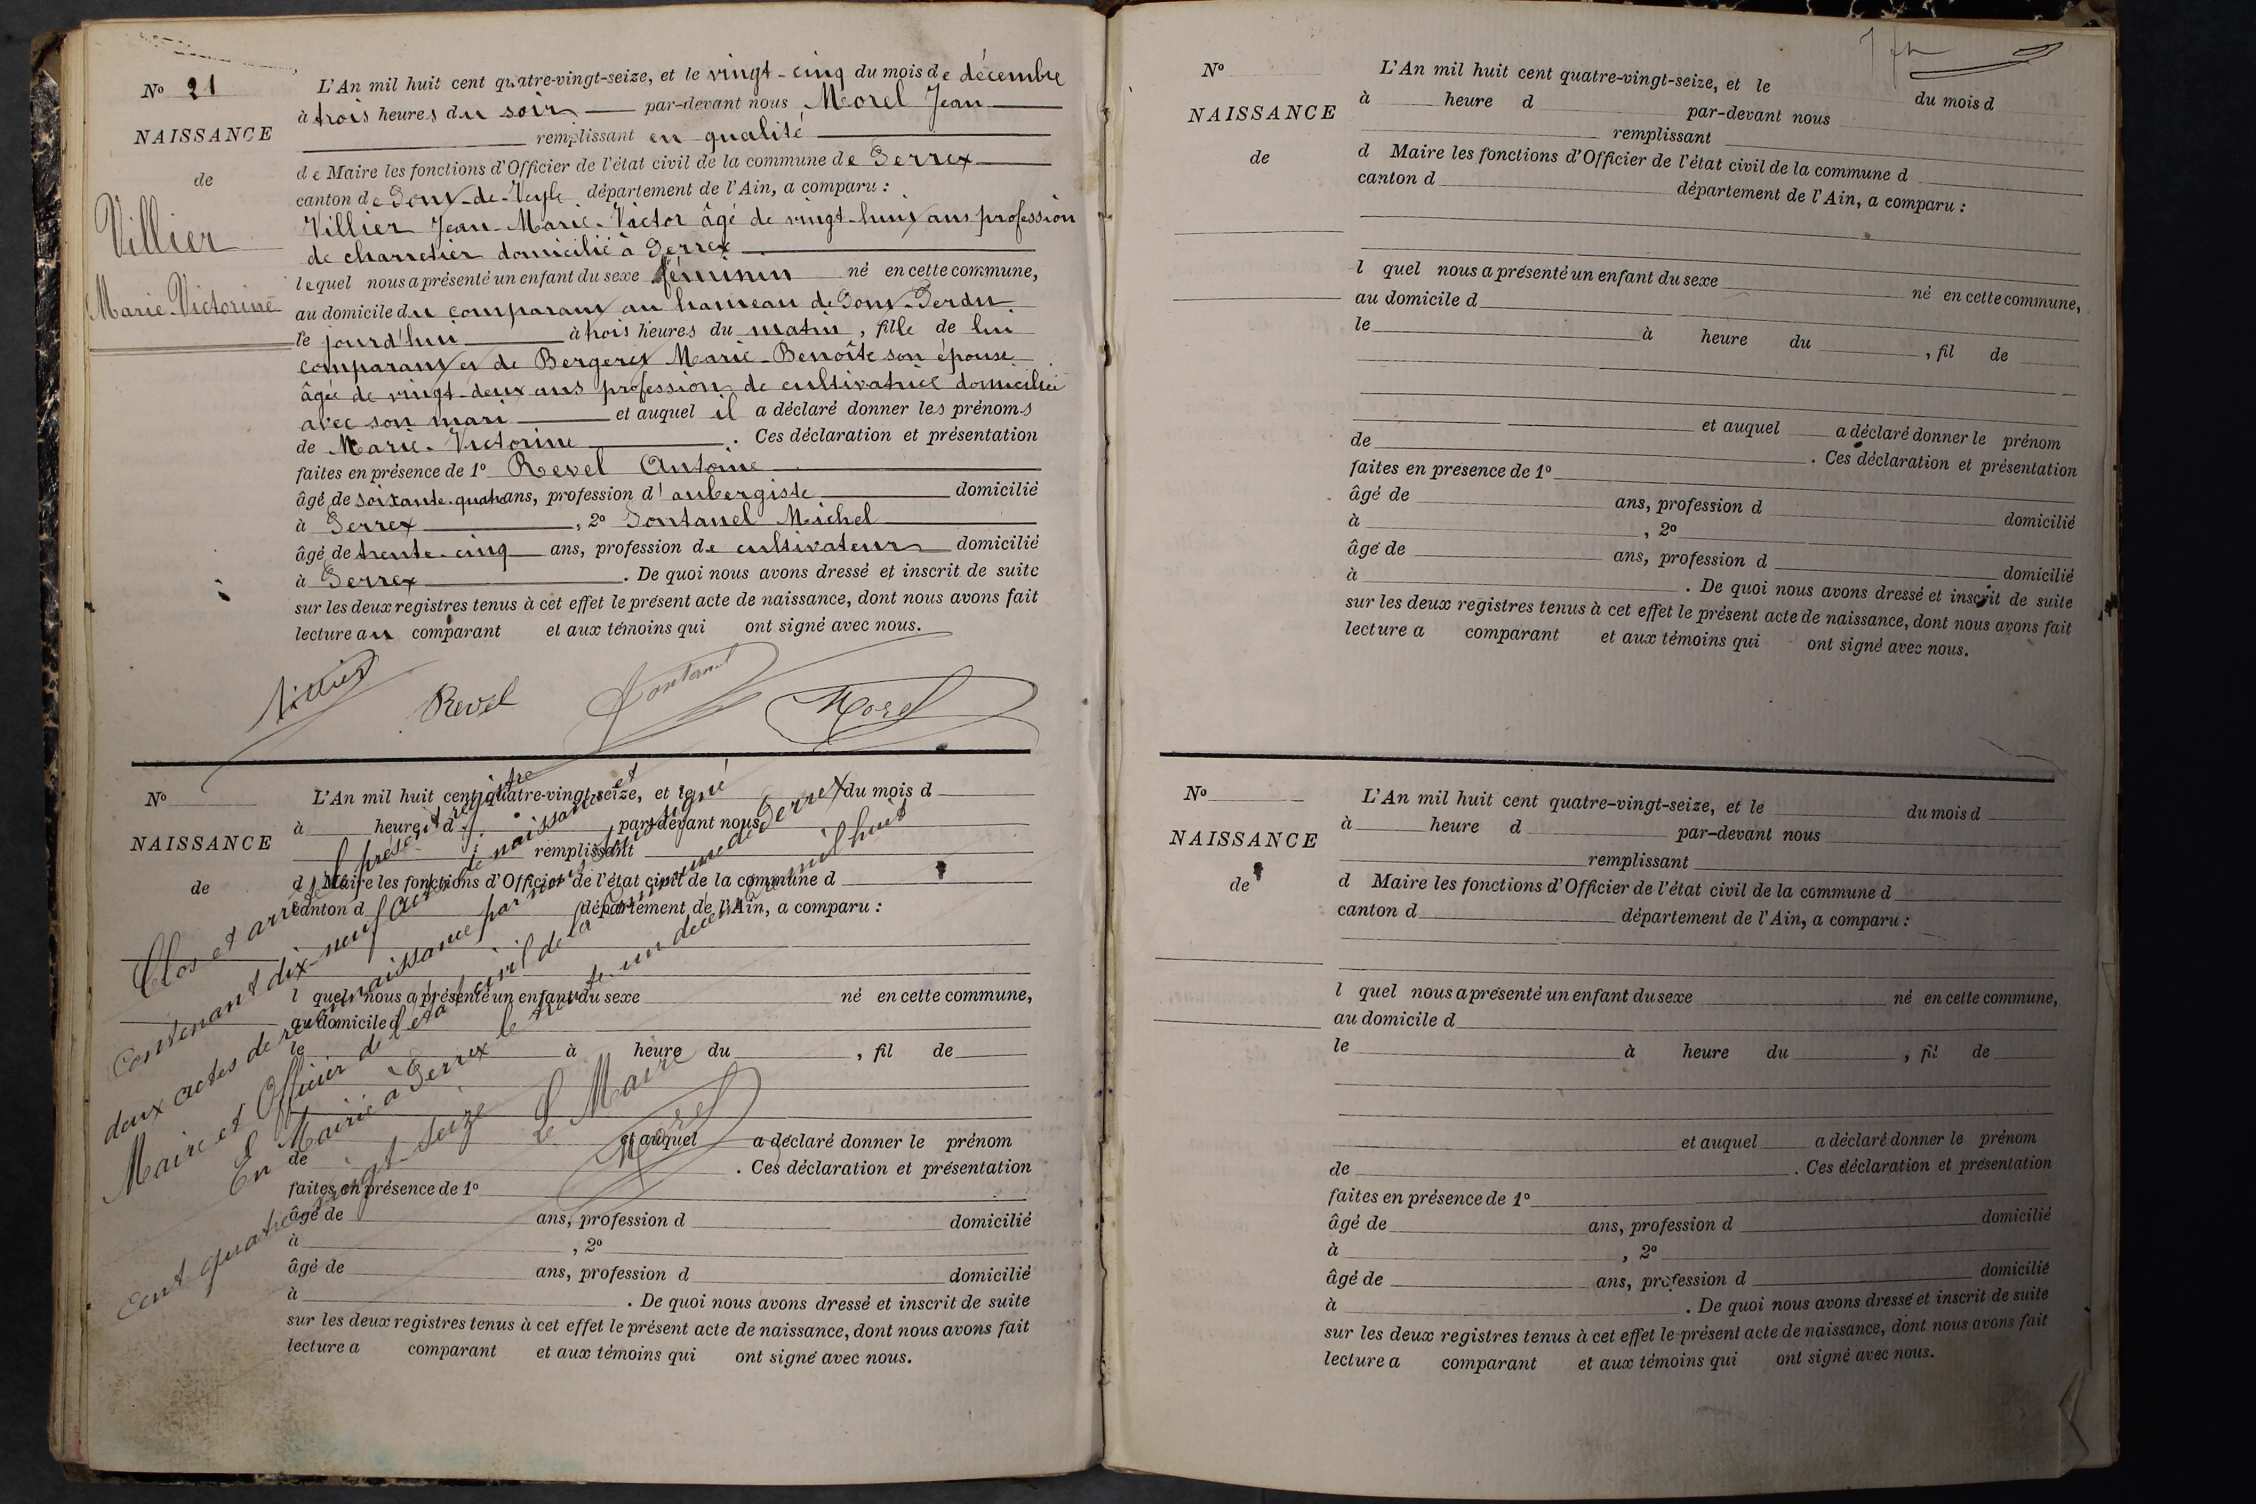 N° 21
NAISSANCE
de
Villier
Marie-Victorine
L'An mil huit cent quatre-vingt-seize, et le vingt-cinq du mois de décembre
à trois heures du soir par-devant nous Morel Jean
remplissant en qualité
de Maire les fonctions d'Officier de l'état civil de la commune de Perrex
canton de Pont-de-Veyle département de l'Ain, a comparu :
Villier Jean-Marie-Victor âgé de vingt-huit ans profession
de charretier domicilié à Perrex
lequel nous a présenté un enfant du sexe féminin né en cette commune,
au domicile du comparant au hameau de Pont-Perdu
le jourd'hui à trois heures du matin, fille de lui
comparant et de Bergeret Marie-Benoîte son épouse
âgée de vingt-deux ans profession de cultivatrice domiciliée
avec son mari et auquel il a déclaré donner les prénoms
de Marie-Victorine . Ces déclaration et présentation
faites en présence de 1° Revel Antoine
âgé de soixante-quatre ans, profession d'aubergiste domicilié
à Perrex , 2° Pontanel Michel
âgé de trente-cinq ans, profession de cultivateur domicilié
à Perrex . De quoi nous avons dressé et inscrit de suite
sur les deux registres tenus à cet effet le présent acte de naissance, dont nous avons fait
lecture au comparant et aux témoins qui ont signé avec nous.
Villier Revel Pontanel Morel
N°
NAISSANCE
de
L'An mil huit cent quatre-vingt-seize, et le du mois d
à heure d par-devant nous
remplissant
d Maire les fonctions d'Officier de l'état civil de la commune d
canton d département de l'Ain, a comparu :
l quel nous a présenté un enfant du sexe né en cette commune,
au domicile d
le à heure du , fil de
et auquel a déclaré donner le prénom
de . Ces déclaration et présentation
faites en présence de 1°
âgé de ans, profession d domicilié
à , 2°
âgé de ans, profession d domicilié
à . De quoi nous avons dressé et inscrit de suite
sur les deux registres tenus à cet effet le présent acte de naissance, dont nous avons fait
lecture a comparant et aux témoins qui ont signé avec nous.
Clos et arrêté le présent registre
Contenant dix-neuf actes de naissances et
deux actes de reconnaissance par nous soussigné
Maire et Officier de l'état civil de la Commune de Perrex
En Mairie à Perrex le trente un décembre mil huit
cent quatre-vingt-seize
Le Maire
Morel
N°
NAISSANCE
de
L'An mil huit cent quatre-vingt-seize, et le du mois d
à heure d par-devant nous
remplissant
d Maire les fonctions d'Officier de l'état civil de la commune d
canton d département de l'Ain, a comparu :
l quel nous a présenté un enfant du sexe né en cette commune,
au domicile d
le à heure du , fil de
et auquel a déclaré donner le prénom
de . Ces déclaration et présentation
faites en présence de 1°
âgé de ans, profession d domicilié
à , 2°
âgé de ans, profession d domicilié
à . De quoi nous avons dressé et inscrit de suite
sur les deux registres tenus à cet effet le présent acte de naissance, dont nous avons fait
lecture a comparant et aux témoins qui ont signé avec nous.
N°
NAISSANCE
de
L'An mil huit cent quatre-vingt-seize, et le du mois d
à heure d par-devant nous
remplissant
d Maire les fonctions d'Officier de l'état civil de la commune d
canton d département de l'Ain, a comparu :
l quel nous a présenté un enfant du sexe né en cette commune,
au domicile d
le à heure du , fil de
et auquel a déclaré donner le prénom
de . Ces déclaration et présentation
faites en présence de 1°
âgé de ans, profession d domicilié
à , 2°
âgé de ans, profession d domicilié
à . De quoi nous avons dressé et inscrit de suite
sur les deux registres tenus à cet effet le présent acte de naissance, dont nous avons fait
lecture a comparant et aux témoins qui ont signé avec nous.